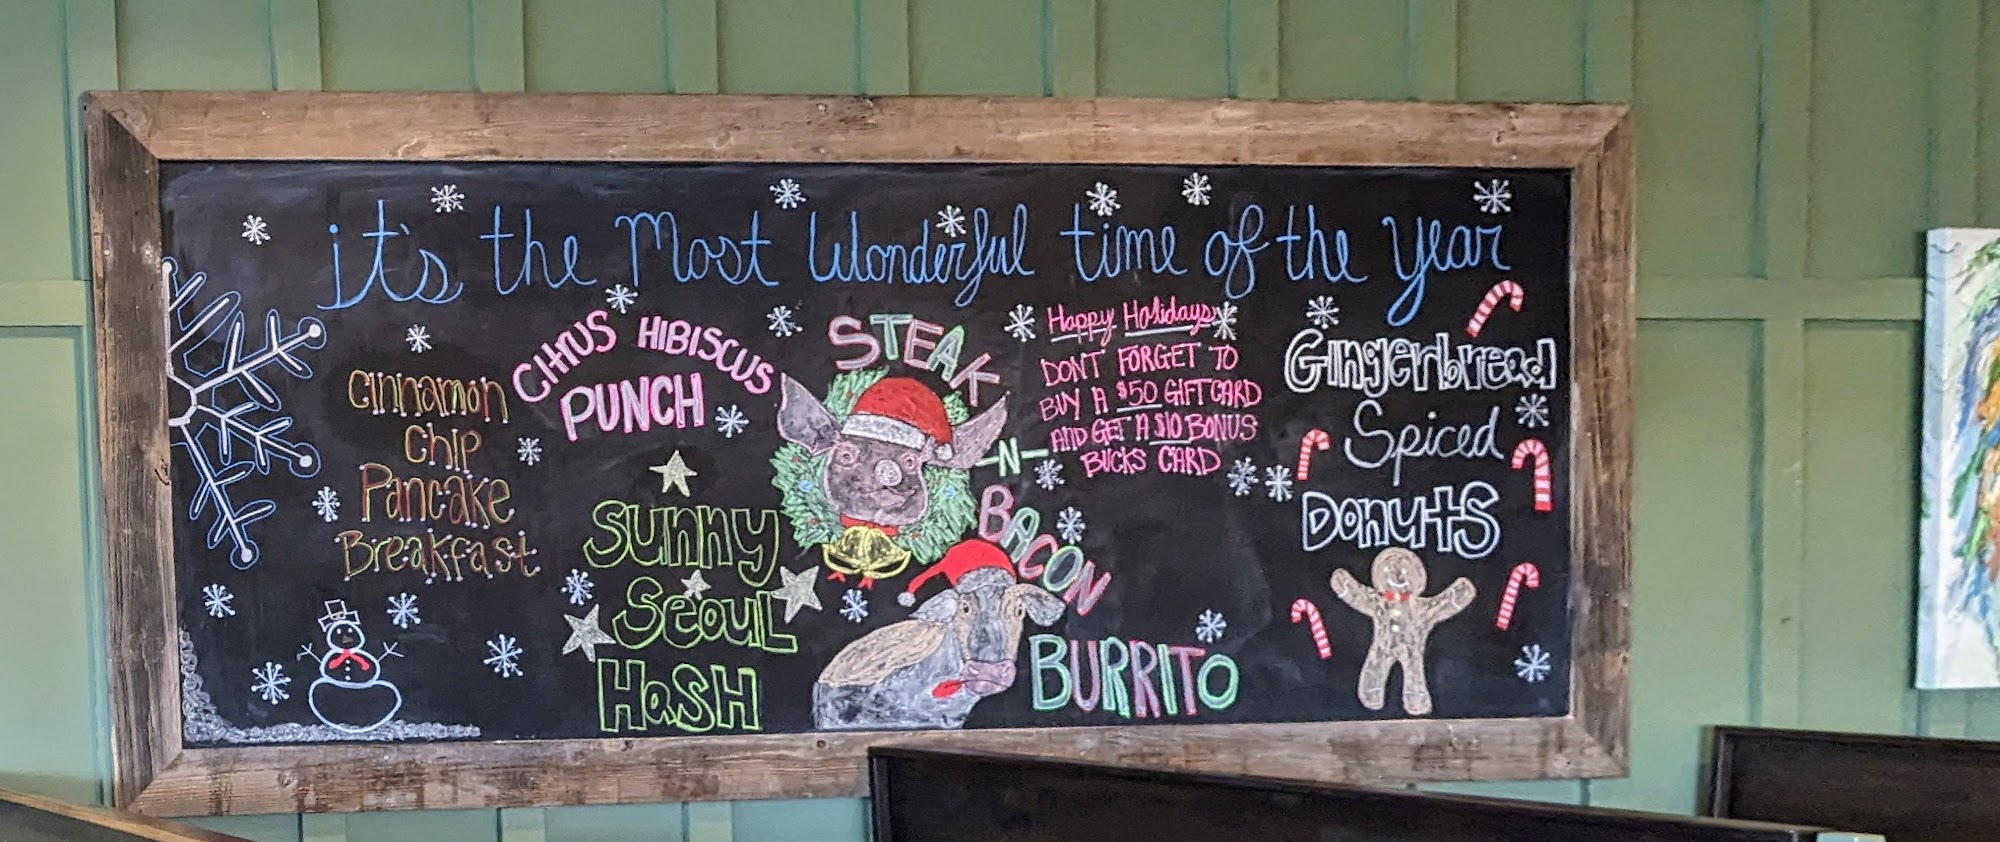 it's the Most Wonderful time of the Year
Cinnamon
Chip
Pancake
Breakfast
CitrUS HIBISCUS
PUNCH
Sunny
SeoUL
HaSH
STEAK
-N-
BACON
BURRITO
Happy Holidays
DONT FORGET TO
BUY A $50 GIFTCARD
AND GET A $10 BONUS
BUCKS CARD
Gingerbread
Spiced
DonutS